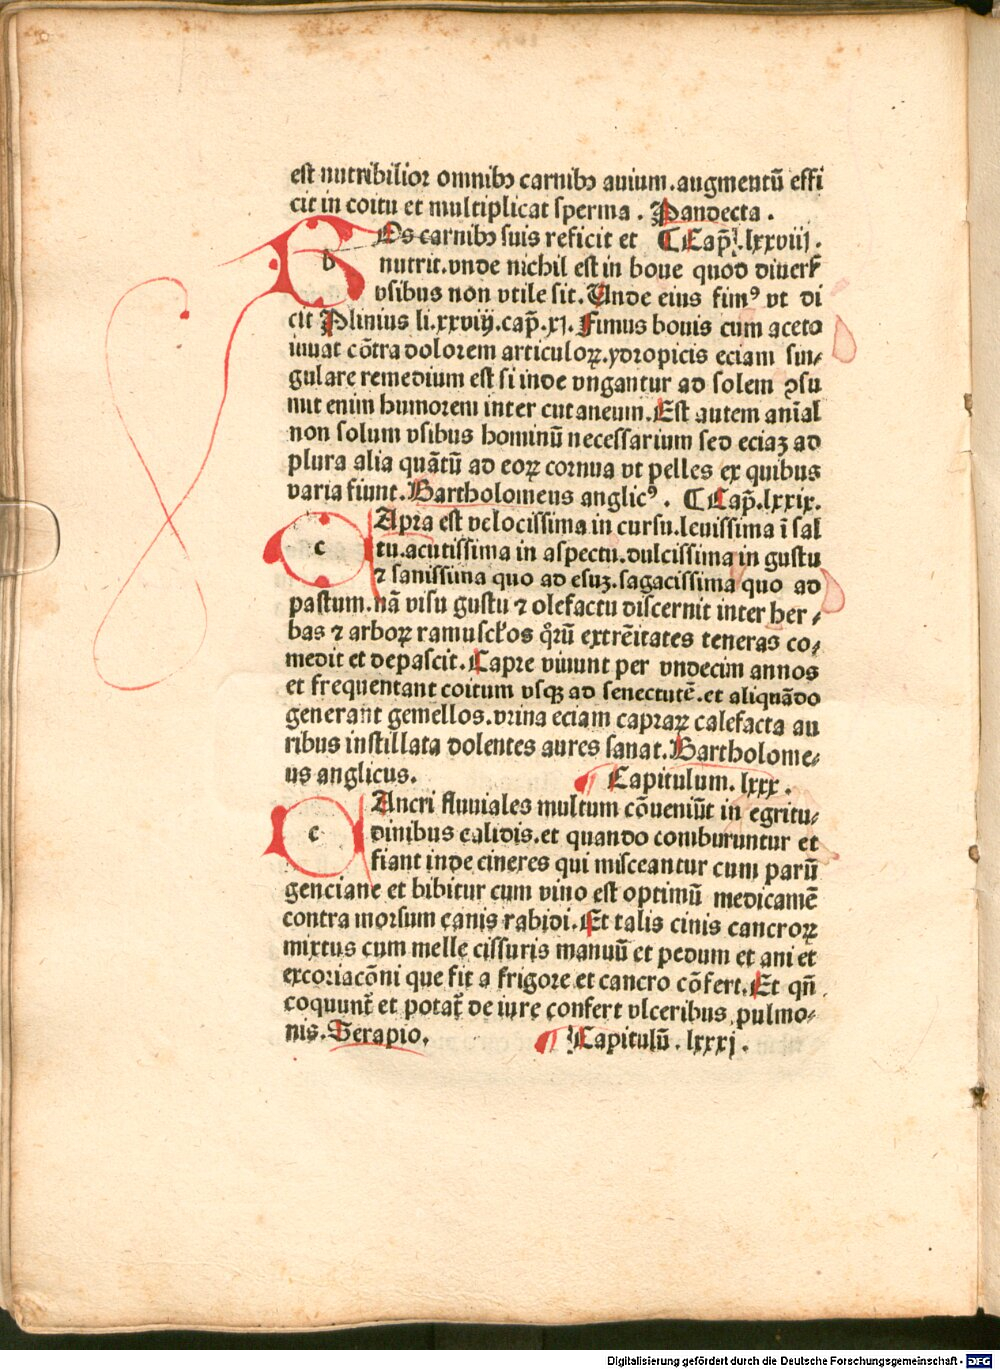 est nutribilior omnibꝰ carnibꝰ auium.augmentū effi
cit in coitu et multiplicat sperma . Pandecta .
BOs carnibꝰ suis reficit et ¶ Cap̄. lxxviij .
nutrit.vnde nichil est in boue quod diuers
vsibus non vtile sit. Unde eius fimꝰ vt di
cit Plinius li.xxviij.cap̄.xj. Fimus bouis cum aceto
iuuat cōtra dolorem articuloꝝ.ydropicis eciam sin⸗
gulare remedium est si inde vngantur ad solem ꝯsu
mit enim humorem inter cutaneum. Est autem anīal
non solum vsibus hominū necessarium sed eciaꝫ ad
plura alia quātū ad eoꝝ cornua vt pelles ex quibus
varia fiunt. Bartholomeus anglicꝰ . ¶ Cap̄. lxxix.
c Apra est velocissima in cursu.leuissima ī sal
tu.acutissima in aspectu.dulcissima in gustu
⁊ sanissima quo ad esuꝫ.sagacissima quo ad
pastum.nā visu gustu ⁊ olefactu discernit inter her⸗
bas ⁊ arboꝝ ramusclos qꝛū extrēitates teneras co⸗
medit et depascit. Capre viuunt per vndecim annos
et frequentant coitum vsqꝫ ad senectutē.et aliquādo
generant gemellos.vrina eciam capraꝝ calefacta au
ribus instillata dolentes aures sanat. Bartholome⸗
us anglicus. ¶ Capitulum. lxxx .
c Ancri fluuiales multum cōueniūt in egritu⸗
dinibus calidis.et quando comburuntur et
fiant inde cineres qui misceantur cum parū
genciane et bibitur cum vino est optimū medicamē
contra morsum canis rabidi. Et talis cinis cancroꝝ
mixtus cum melle cissuris manuū et pedum et ani et
excoriacōni que fit a frigore et cancro cōfert. Et qn̄
coquunt᷑ et potat᷑ de iure confert vlceribus pulmo⸗
nis. Serapio. ¶ Capitulū . lxxxj .
Digitalisierung gefördert durch die Deutsche Forschungsgemeinschaft - DFG